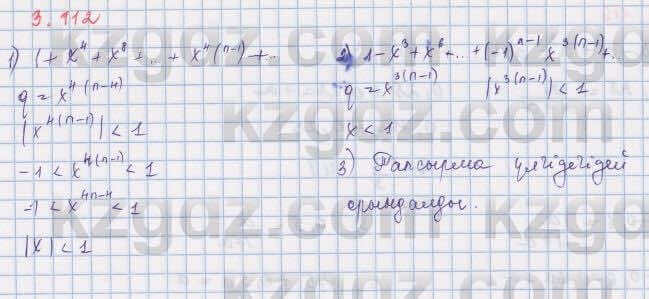 3.112
1) 1 + x⁴ + x⁸ + ... + x⁴⁽ⁿ⁻¹⁾ + ..
q = x⁴⁽ⁿ⁻⁴⁾
|x⁴⁽ⁿ⁻¹⁾| < 1
-1 < x⁴⁽ⁿ⁻¹⁾ < 1
-1 < x⁴ⁿ⁻⁴ < 1
|x| < 1
2) 1 - x³ + x⁶ - .. + (-1)ⁿ⁻¹ x³⁽ⁿ⁻¹⁾ + ..
q = x³⁽ⁿ⁻¹⁾ |x³⁽ⁿ⁻¹⁾| < 1
x < 1
3) Тапсырма үлгідегідей
орындалды.
kzgdz.com